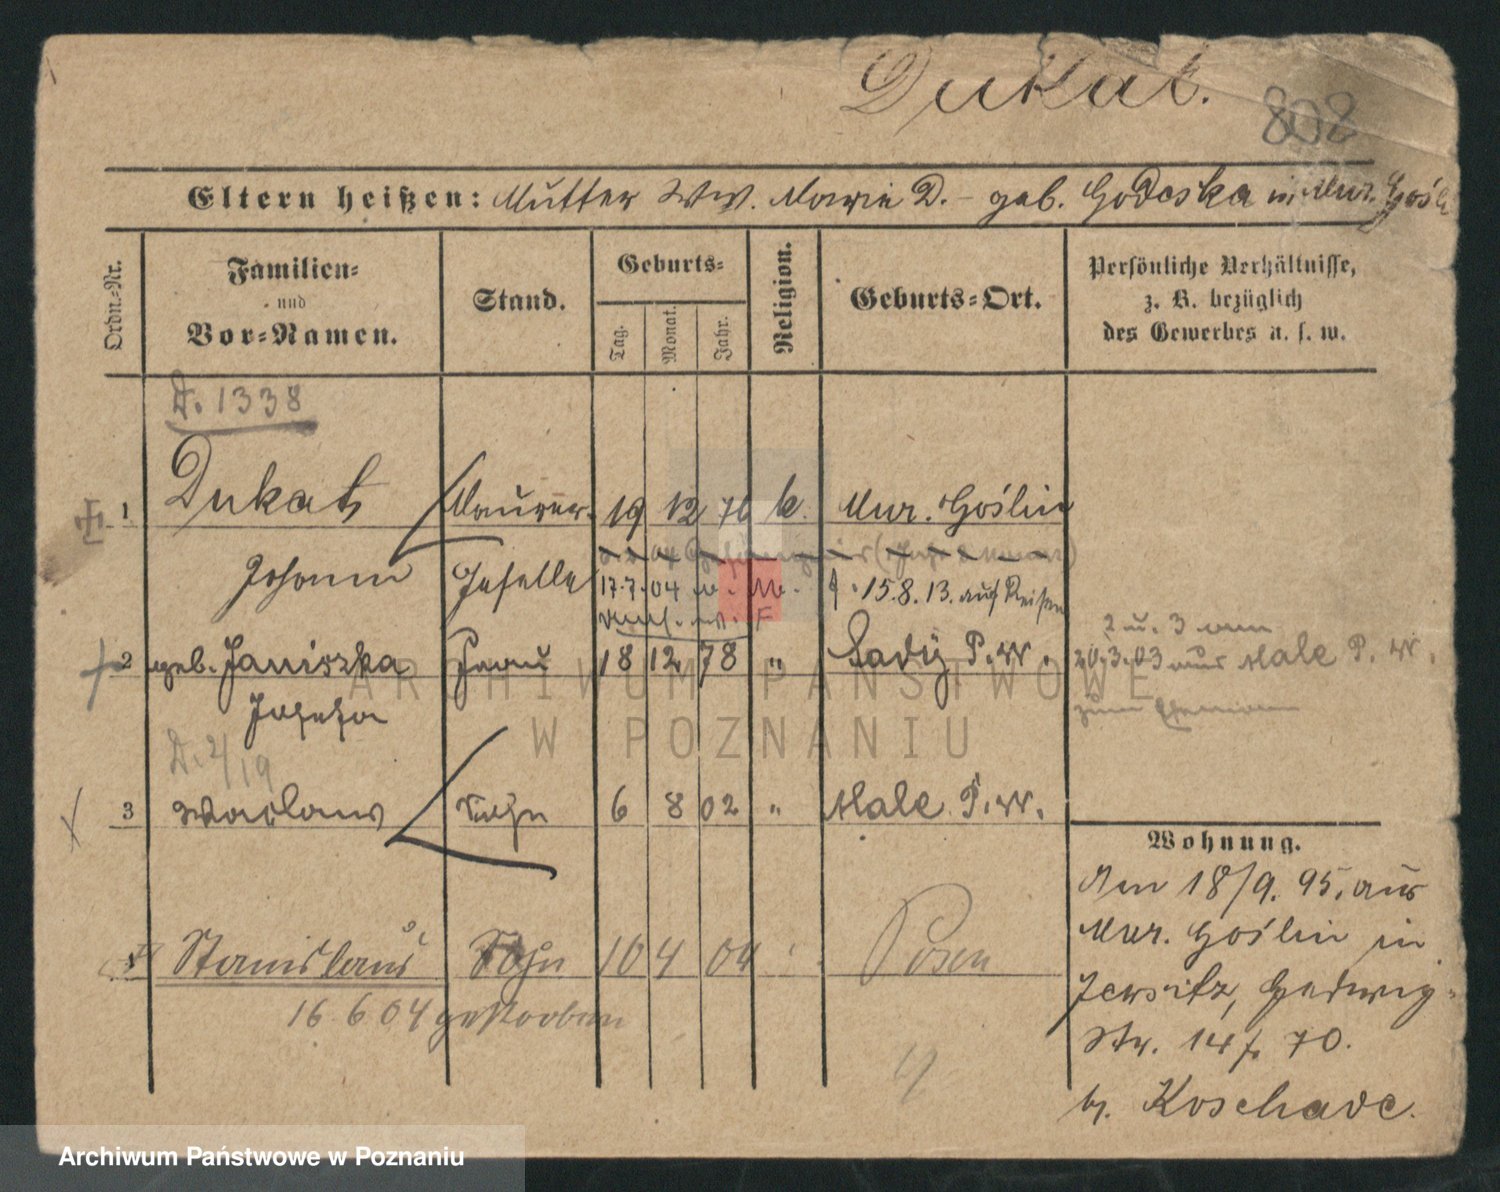 Dukat.
808
Eltern heißen: Mutter Ww. Marie D. - geb. Godeska in Mur. Gośl
Ordn.-Nr.
Familien-
und
Vor-Namen.
Stand.
Geburts-
Tag.
Monat.
Jahr.
Religion.
Geburts-Ort.
Persönliche Verhältnisse,
z. B. bezüglich
des Gewerbes u. s. w.
D. 1338
1 Dukat Maurer- 19 12 76 k. Mur. Goślin
Johann Geselle 17.7.04 15.8.13. auf Reisen
2 geb. Janiszka Frau 18 12 78 " Sady P.W.
Josefa
2 u. 3 am
20.3.03 aus Male P. W.
zum Ehemann
D. 2/19
3 Waclaw Sohn 6 8 02 " Male P.W.
Stanislaus Sohn 10 4 04 Posen
16 6 04 gestorben
Wohnung.
Am 18/9. 95. aus
Mur. Goślin in
Jersitz, Hedwig-
Str. 14 70.
b. Koschave.
ARCHIWUM PAŃSTWOWE
W POZNANIU
Archiwum Państwowe w Poznaniu